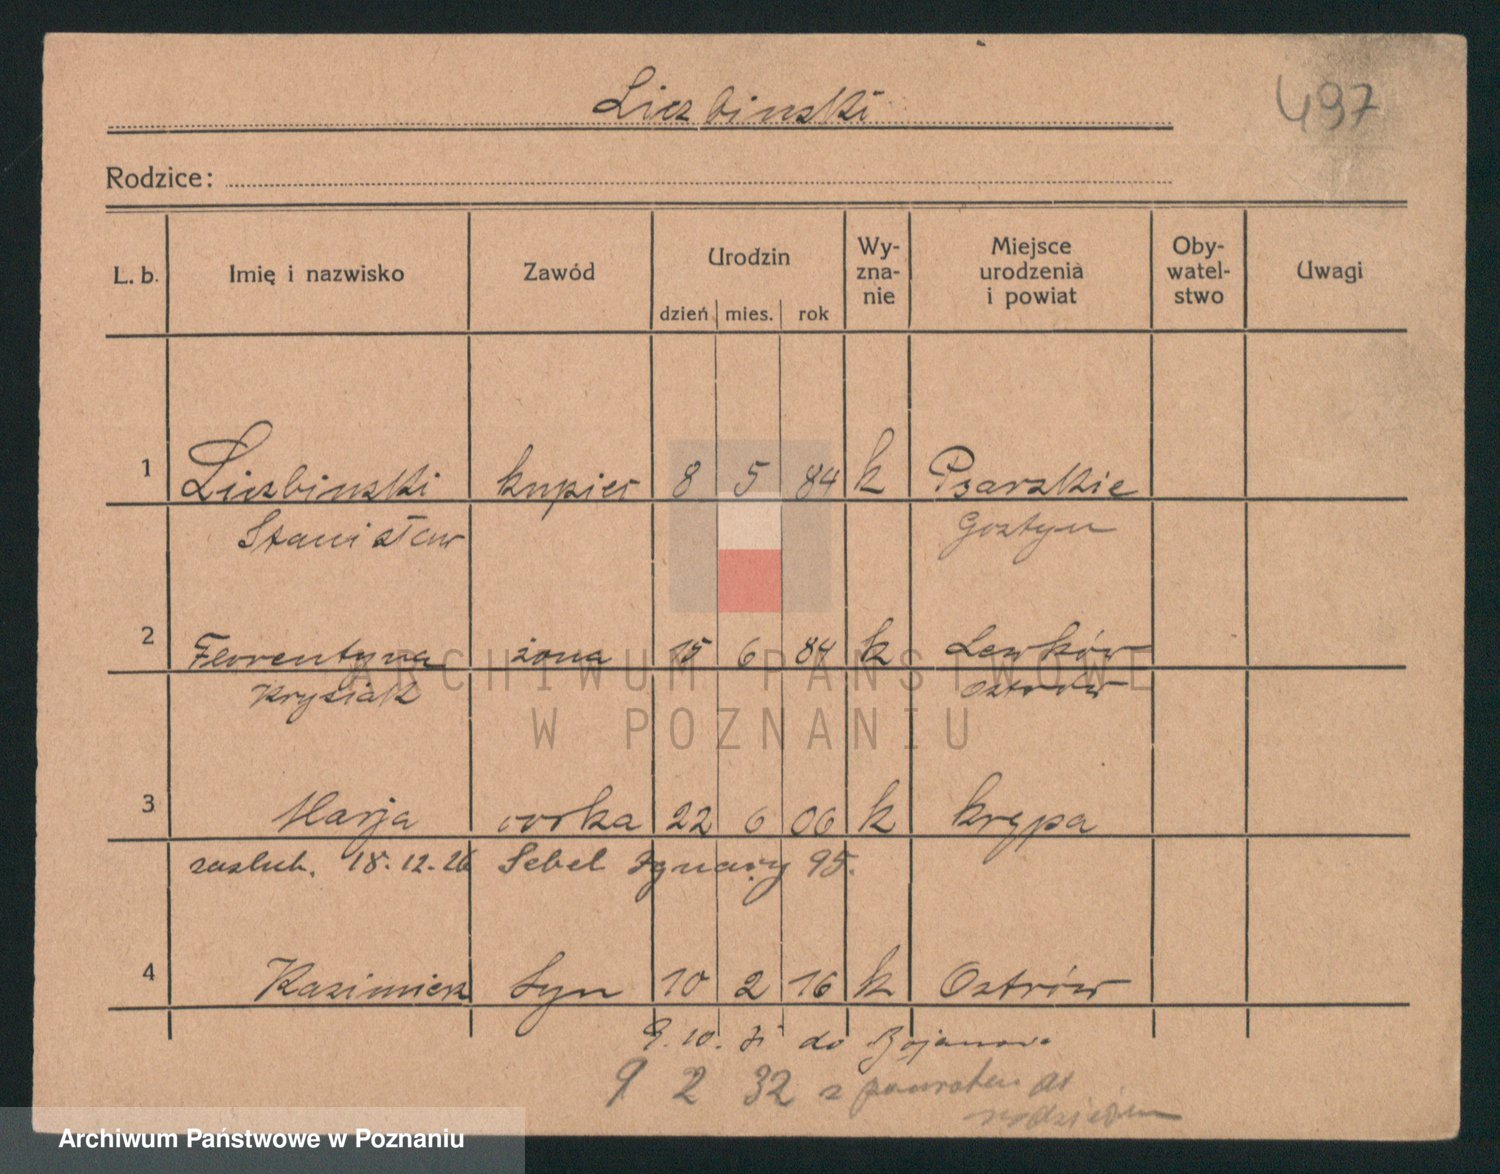 Liczbinski
497
Rodzice:
L. b. Imię i nazwisko Zawód Urodzin dzień mies. rok Wy-zna-nie Miejsce urodzenia i powiat Oby-watel-stwo Uwagi
1 Liczbinski kupiec 8 5 84 k Psarskie
Stanisław Gostyn
2 Florentyna żona 15 6 84 k Lewków
Krysiak Ostrów
3 Marja córka 22 6 06 k Krępa
zaslub. 18.12.26 Sebel Ignacy 95.
4 Kazimierz Syn 10 2 16 k Ostrów
9.10. do Bojanowa
9 2 32 z powrotem do
ARCHIWUM PAŃSTWOWE
W POZNANIU
Archiwum Państwowe w Poznaniu